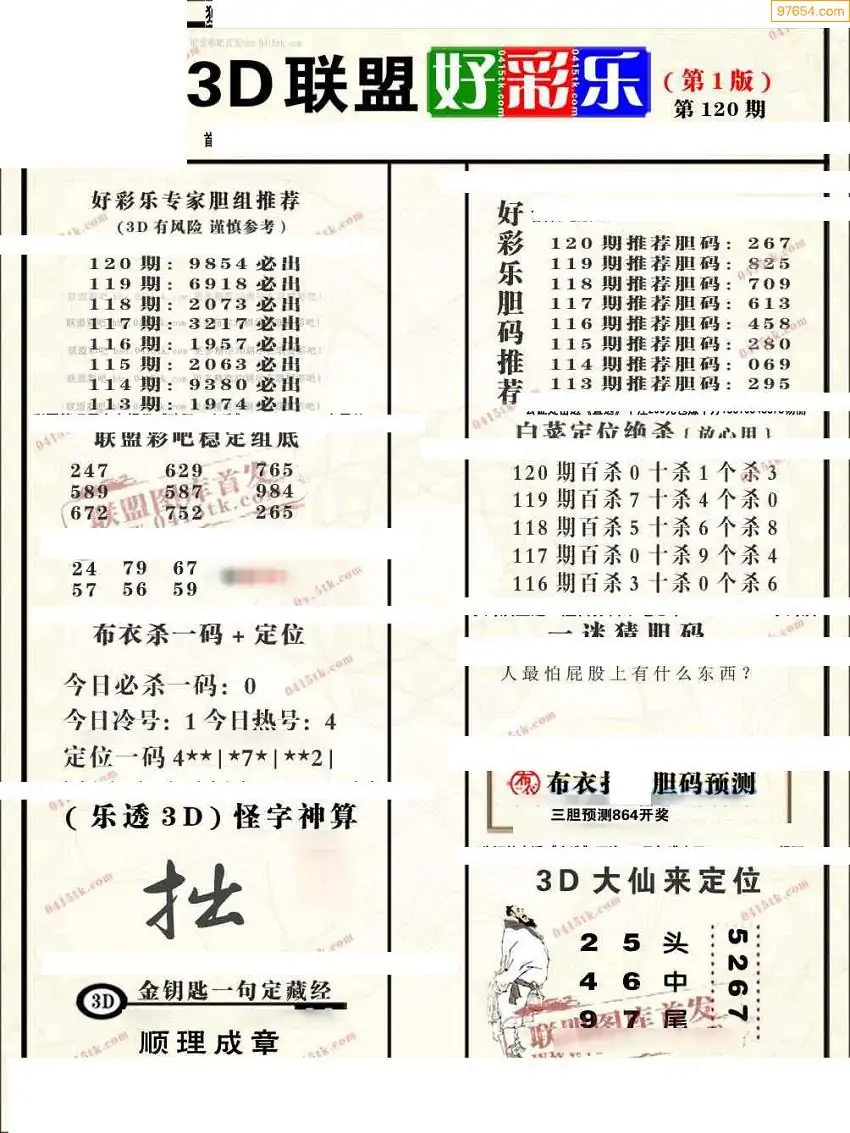 97654.com
3D联盟 好彩乐 (第1版)
第120期
首
好彩乐专家胆组推荐
(3D有风险 谨慎参考)
120期: 9854必出
119期: 6918必出
118期: 2073必出
117期: 3217必出
116期: 1957必出
115期: 2063必出
114期: 9380必出
113期: 1974必出
联盟彩吧稳定组底
247 629 765
589 587 984
672 752 265
24 79 67
57 56 59
布衣杀一码+定位
今日必杀一码: 0
今日冷号: 1 今日热号: 4
定位一码 4**|*7*|**2|
(乐透3D)怪字神算
拙
3D 金钥匙一句定藏经
顺理成章
好彩乐胆码推荐
120期推荐胆码: 267
119期推荐胆码: 825
118期推荐胆码: 709
117期推荐胆码: 613
116期推荐胆码: 458
115期推荐胆码: 280
114期推荐胆码: 069
113期推荐胆码: 295
白菜定位绝杀(放心用)
120期百杀0十杀1个杀3
119期百杀7十杀4个杀0
118期百杀5十杀6个杀8
117期百杀0十杀9个杀4
116期百杀3十杀0个杀6
一谜猜胆码
人最怕屁股上有什么东西?
布衣 胆码预测
三胆预测864开奖
3D大仙来定位
2 5 头
4 6 中
9 7 尾
5267
联盟图库首发
0415tk.com